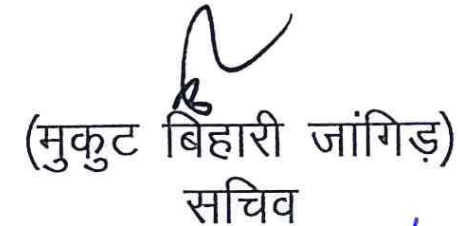 (मुकुट बिहारी जांगिड़)
सचिव